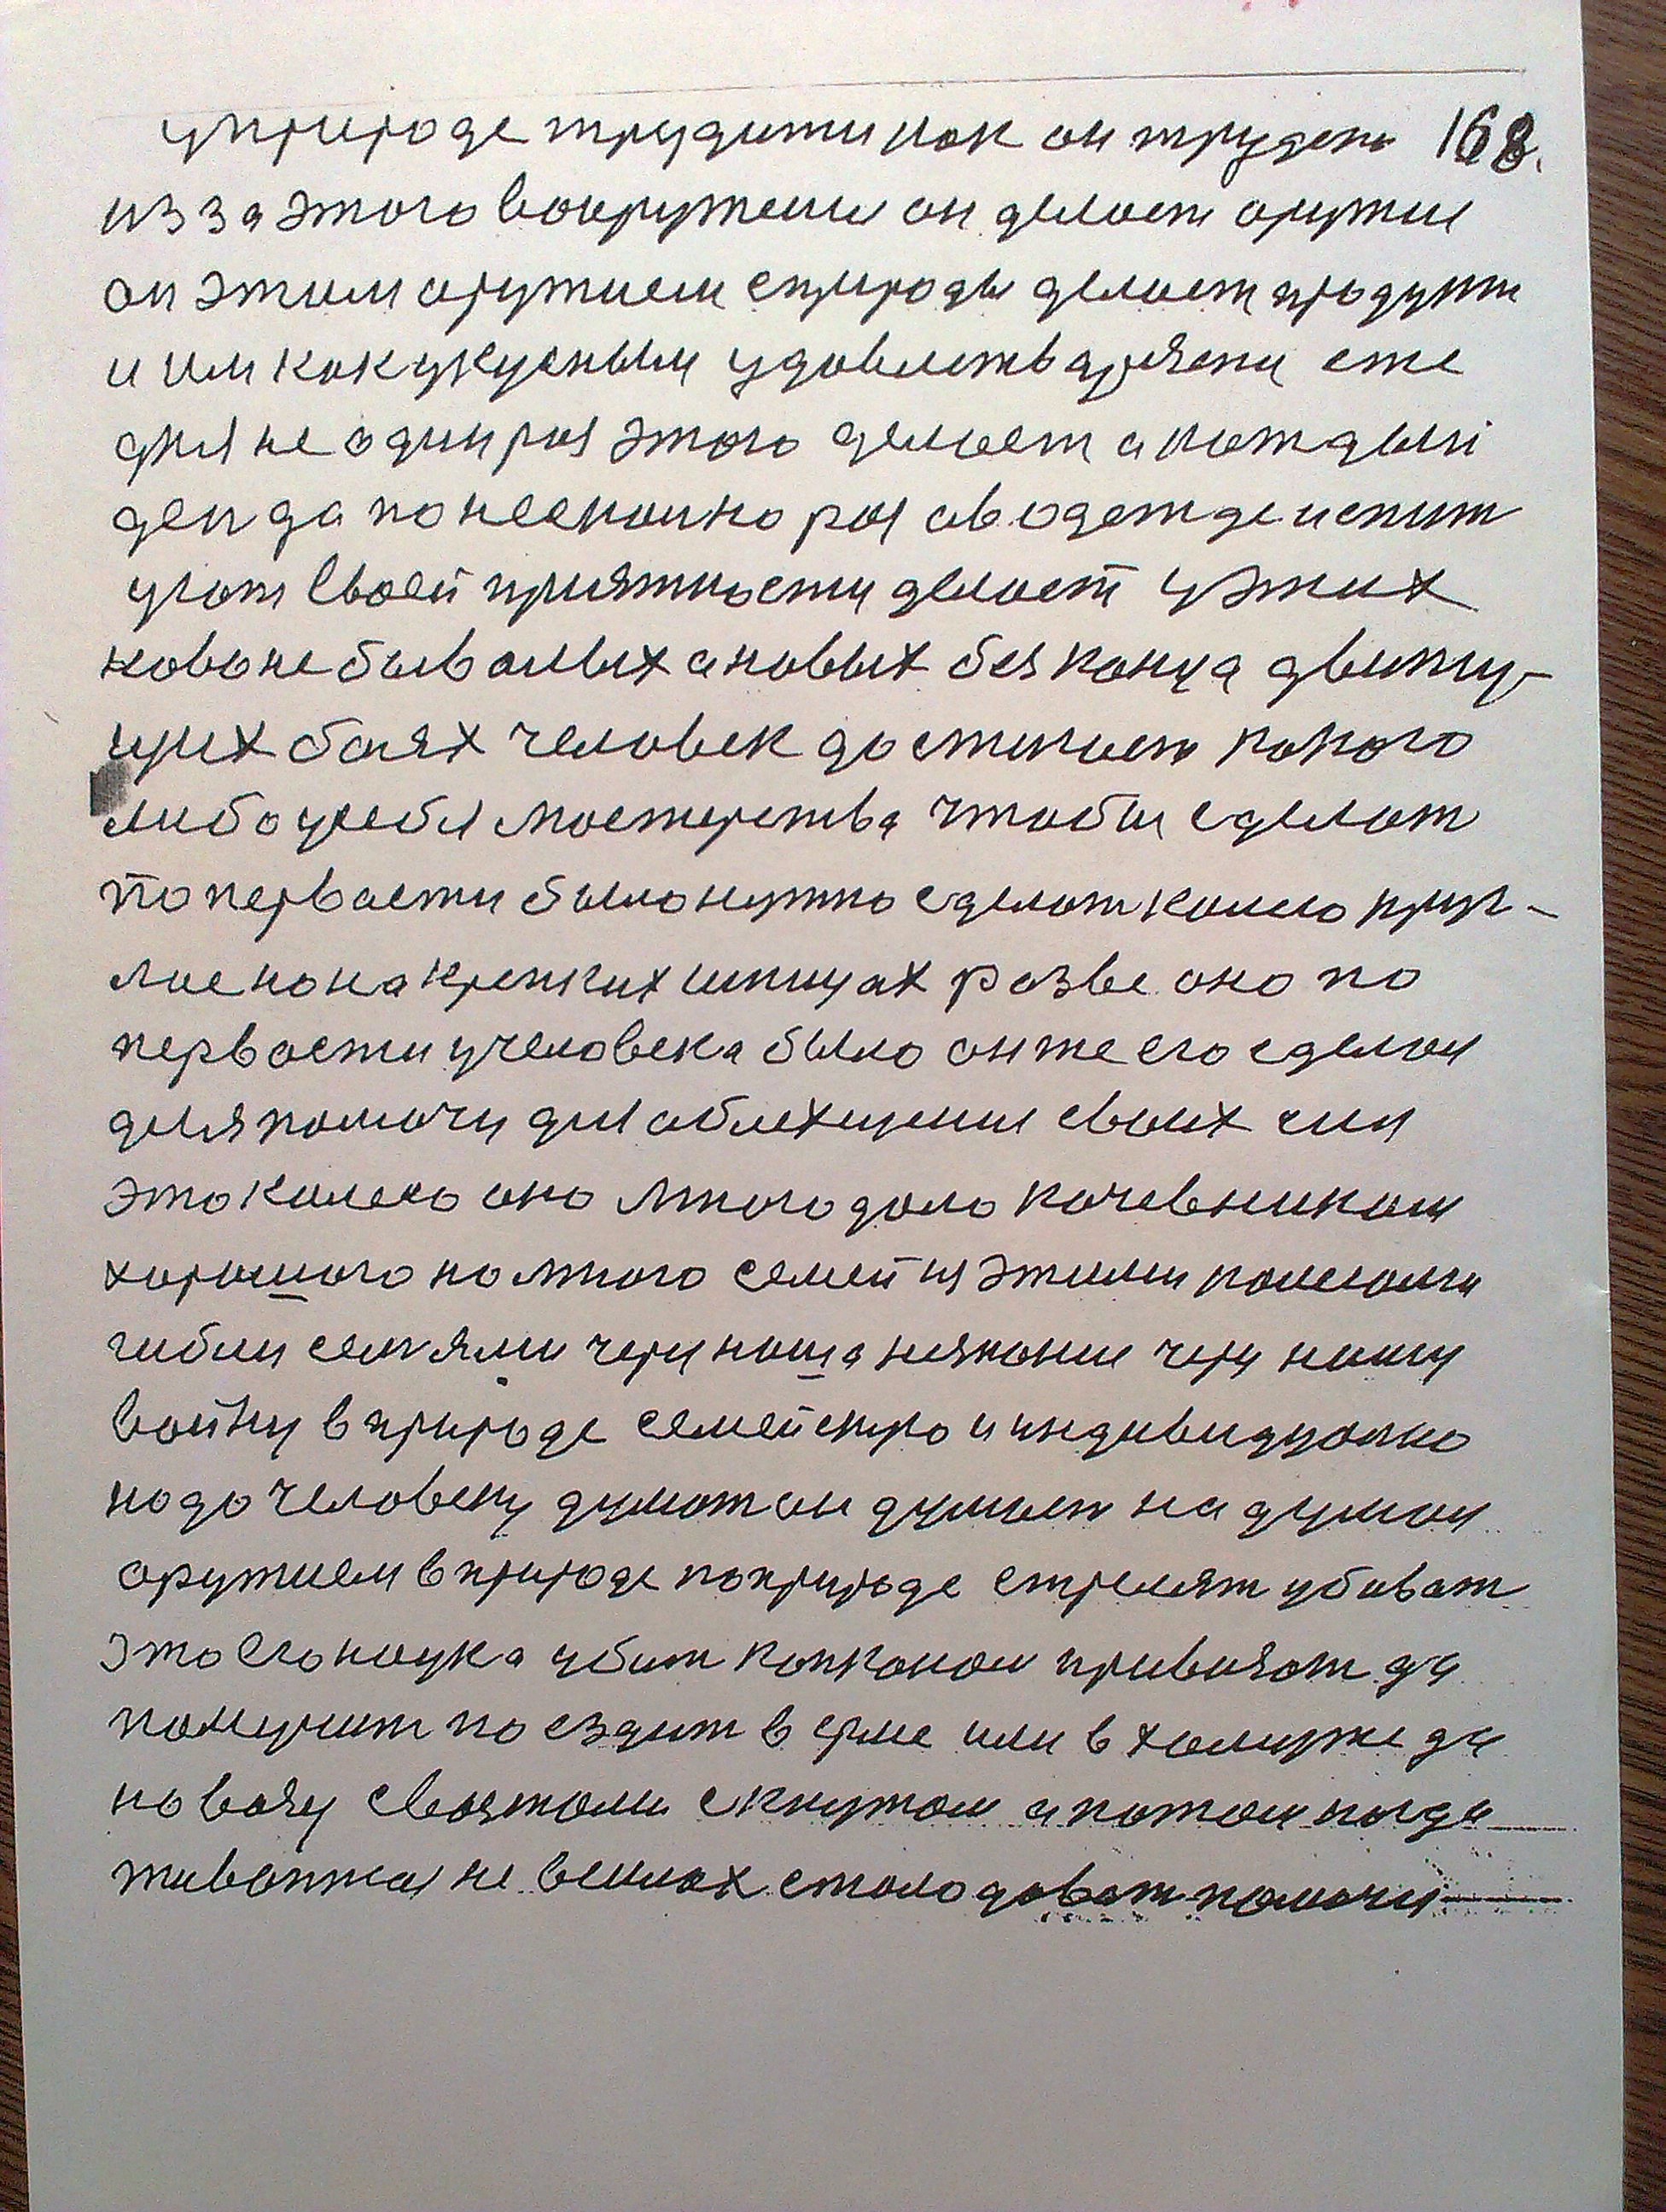 у природе трудити как он трудень 168.
из за этого вооружении он делоет оружие
он этим оружием с природы делает продукт
и им как укусным удовлетваряени еже
дня не один раз этого делоет а кождый
ден да по несколко раз а в одежде и спит
угот своей приятности делоет у этих
ново не бывалых а новых без конца движу-
щих боях человек достигает какого
либо у себя мастерства чтобы сделат
по первасти было нужно сделат колесо круг-
лое но на крепких шпицах разве оно по
первасти у человека было он же его сделал
для помочи для облехщении своих сил
это колесо оно много дало кочевникам
хорошого но много семей из этими колесами
гибли семями через наша незнании через нашу
войну в природе семейскую и индивидуално
надо человеку думат он думает надумал
оружием в природе по природе стрелят убиват
это его наука убит капканом привязат да
помучит поездит в ярме или в хомуте да
на возу свозтом с кнутом а потом когда
живатная не в силах стало дават помочи